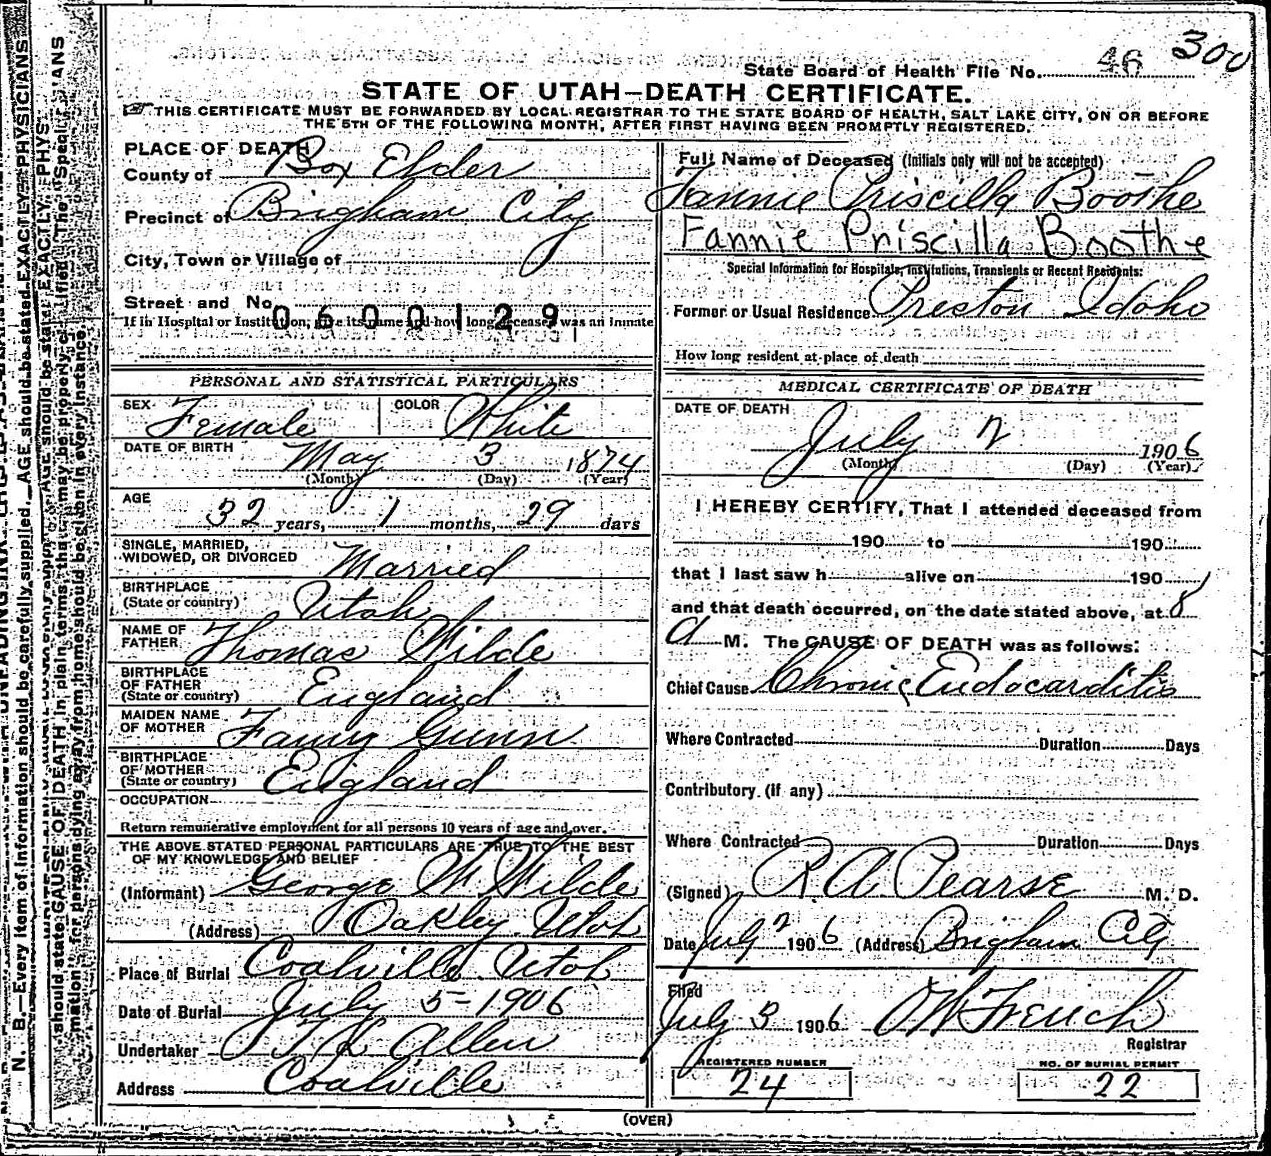 46 300
State Board of Health File No.
STATE OF UTAH—DEATH CERTIFICATE.
THIS CERTIFICATE MUST BE FORWARDED BY LOCAL REGISTRAR TO THE STATE BOARD OF HEALTH, SALT LAKE CITY, ON OR BEFORE
THE 5TH OF THE FOLLOWING MONTH, AFTER FIRST HAVING BEEN PROMPTLY REGISTERED.
PLACE OF DEATH
County of Box Elder
Precinct of Brigham City
City, Town or Village of
Street and No.
0600129
If in Hospital or Institution, give its name and how long deceased was an inmate
PERSONAL AND STATISTICAL PARTICULARS
SEX Female COLOR White
DATE OF BIRTH May 3 1874
(Month) (Day) (Year)
AGE 32 years, 1 months, 29 days
SINGLE, MARRIED,
WIDOWED, OR DIVORCED Married
BIRTHPLACE
(State or country) Utah
NAME OF
FATHER Thomas Wilde
BIRTHPLACE
OF FATHER
(State or country) England
MAIDEN NAME
OF MOTHER Fanny Gunn
BIRTHPLACE
OF MOTHER
(State or country) England
OCCUPATION
Return remunerative employment for all persons 10 years of age and over.
THE ABOVE STATED PERSONAL PARTICULARS ARE TRUE TO THE BEST
OF MY KNOWLEDGE AND BELIEF
(Informant) George W Wilde
(Address) Oakley Utah
Place of Burial Coalville Utah
Date of Burial July 5 - 1906
Undertaker Allen
Address Coalville
Full Name of Deceased (Initials only will not be accepted)
Fannie Priscilla Boothe
Fannie Priscilla Boothe
Special Information for Hospitals, Institutions, Transients or Recent Residents:
Former or Usual Residence Preston Idaho
How long resident at place of death
MEDICAL CERTIFICATE OF DEATH
DATE OF DEATH
July 2 1906
(Month) (Day) (Year)
I HEREBY CERTIFY, That I attended deceased from
190 to 190
that I last saw h alive on 190
and that death occurred, on the date stated above, at 8
a M. The CAUSE OF DEATH was as follows:
Chief Cause Chronic Endocarditis
Where Contracted Duration Days
Contributory (if any)
Where Contracted Duration Days
(Signed) R A Pearse M. D.
Date July 2 1906 (Address) Brigham City
Filed
July 3 1906 O W French
Registrar
REGISTERED NUMBER
24
NO. OF BURIAL PERMIT
22
(OVER)
N. B.—Every item of information should be carefully supplied. AGE should be stated EXACTLY. PHYSICIANS
should state CAUSE OF DEATH in plain terms, that it may be properly classified. The "Special
for persons dying away from home should be given in every instance.